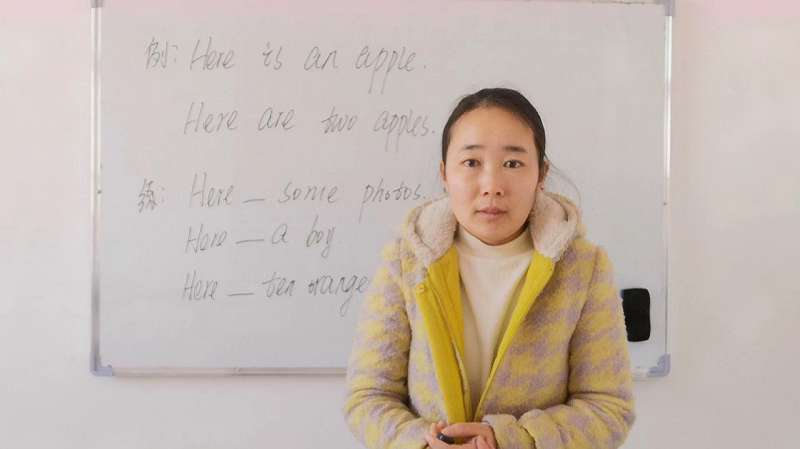 例: Here is an apple.
Here are two apples.
练: Here _ some photos.
Here _ a boy
Here _ ten orange